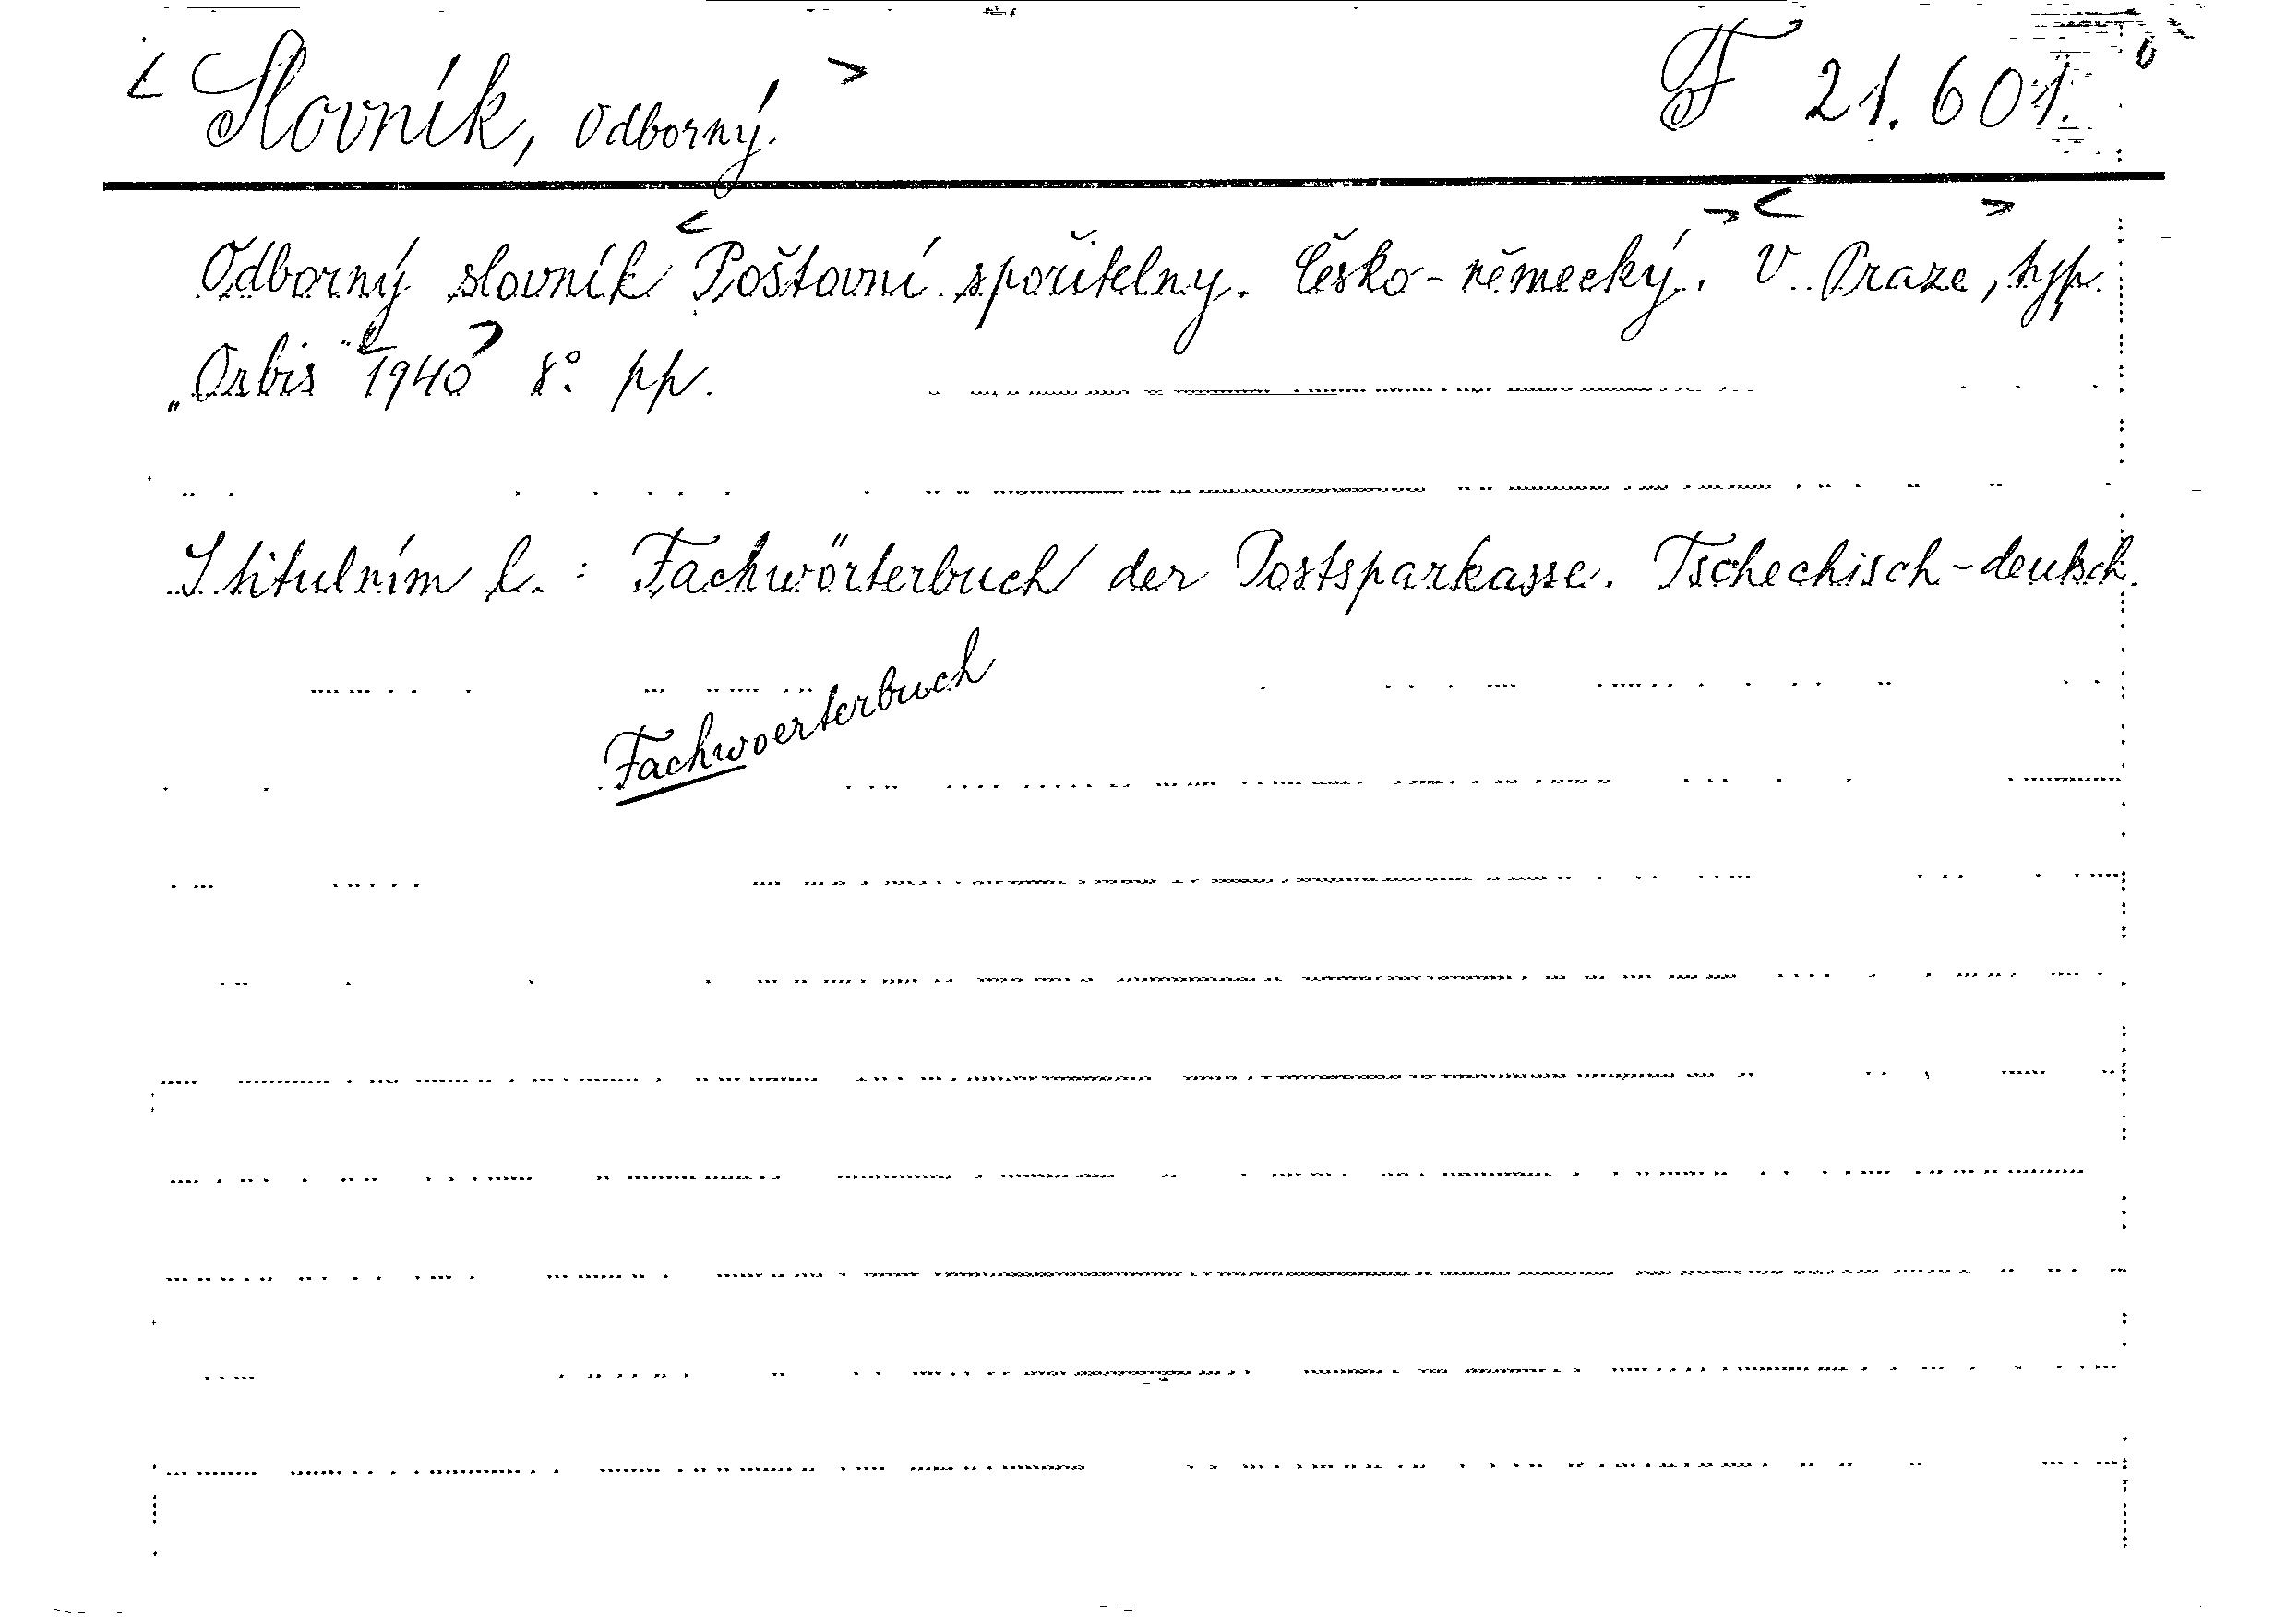 < Slovník, Odborný. > F 21.601.
Odborný slovník < Poštovní spořitelny. Česko-německý. > < V Praze, > typ.
„Orbis" < 1940 > 8°. pp.
S titulním l. : Fachwörterbuch der Postsparkasse. Tschechisch-deutsch.
Fachwoerterbuch